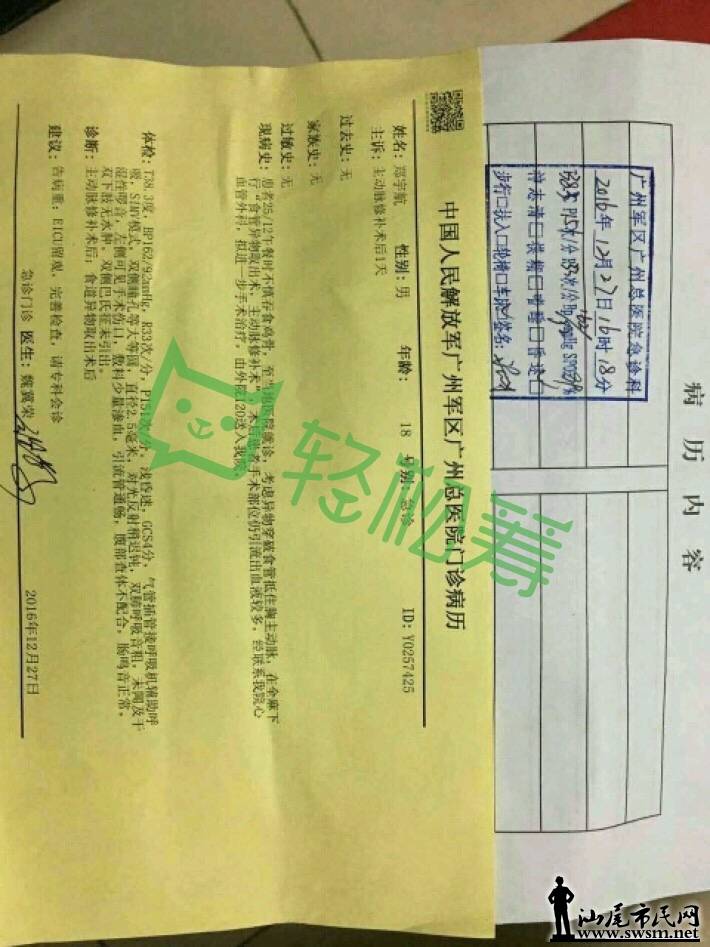 病历内容
广州军区广州总医院急诊科
2016年12月27日16时18分
中国人民解放军广州军区广州总医院门诊病历
ID: Y0257425
姓名: 性别:男 年龄: 18 号别:急诊
主诉:主动脉修补术后1天
过去史:无
家族史:无
过敏史:无
现病史:患者25/12午餐时不慎吞食鸡骨,至当地医院就诊,考虑异物穿破食管抵住胸主动脉,在全麻下
行“食管异物取出术,主动脉修补术”,术后患者手术部位仍引流出血液较多,经联系我院心
血管外科,拟进一步手术治疗。由外院120送入我院。
体检:T38.3度,BP162/92mmHg,R33次/分,P151次/分,浅昏迷,GCS4分,气管插管接呼吸机辅助呼
吸,SIMV模式,双侧瞳孔等大等圆,直径2.5毫米,对光反射稍迟钝,双肺呼吸音粗,未闻及干
湿性啰音,左侧可见手术伤口,敷料少量渗血,引流管通畅,腹部查体不配合,肠鸣音正常,
双下肢无水肿,双侧巴氏征未引出。
诊断:主动脉修补术后,食道异物取出术后
建议:告病重,EICU留观,完善检查,请专科会诊
急诊门诊 医生:魏冀荣
2016年12月27日
轻松筹
汕尾市民网
www.swsm.net